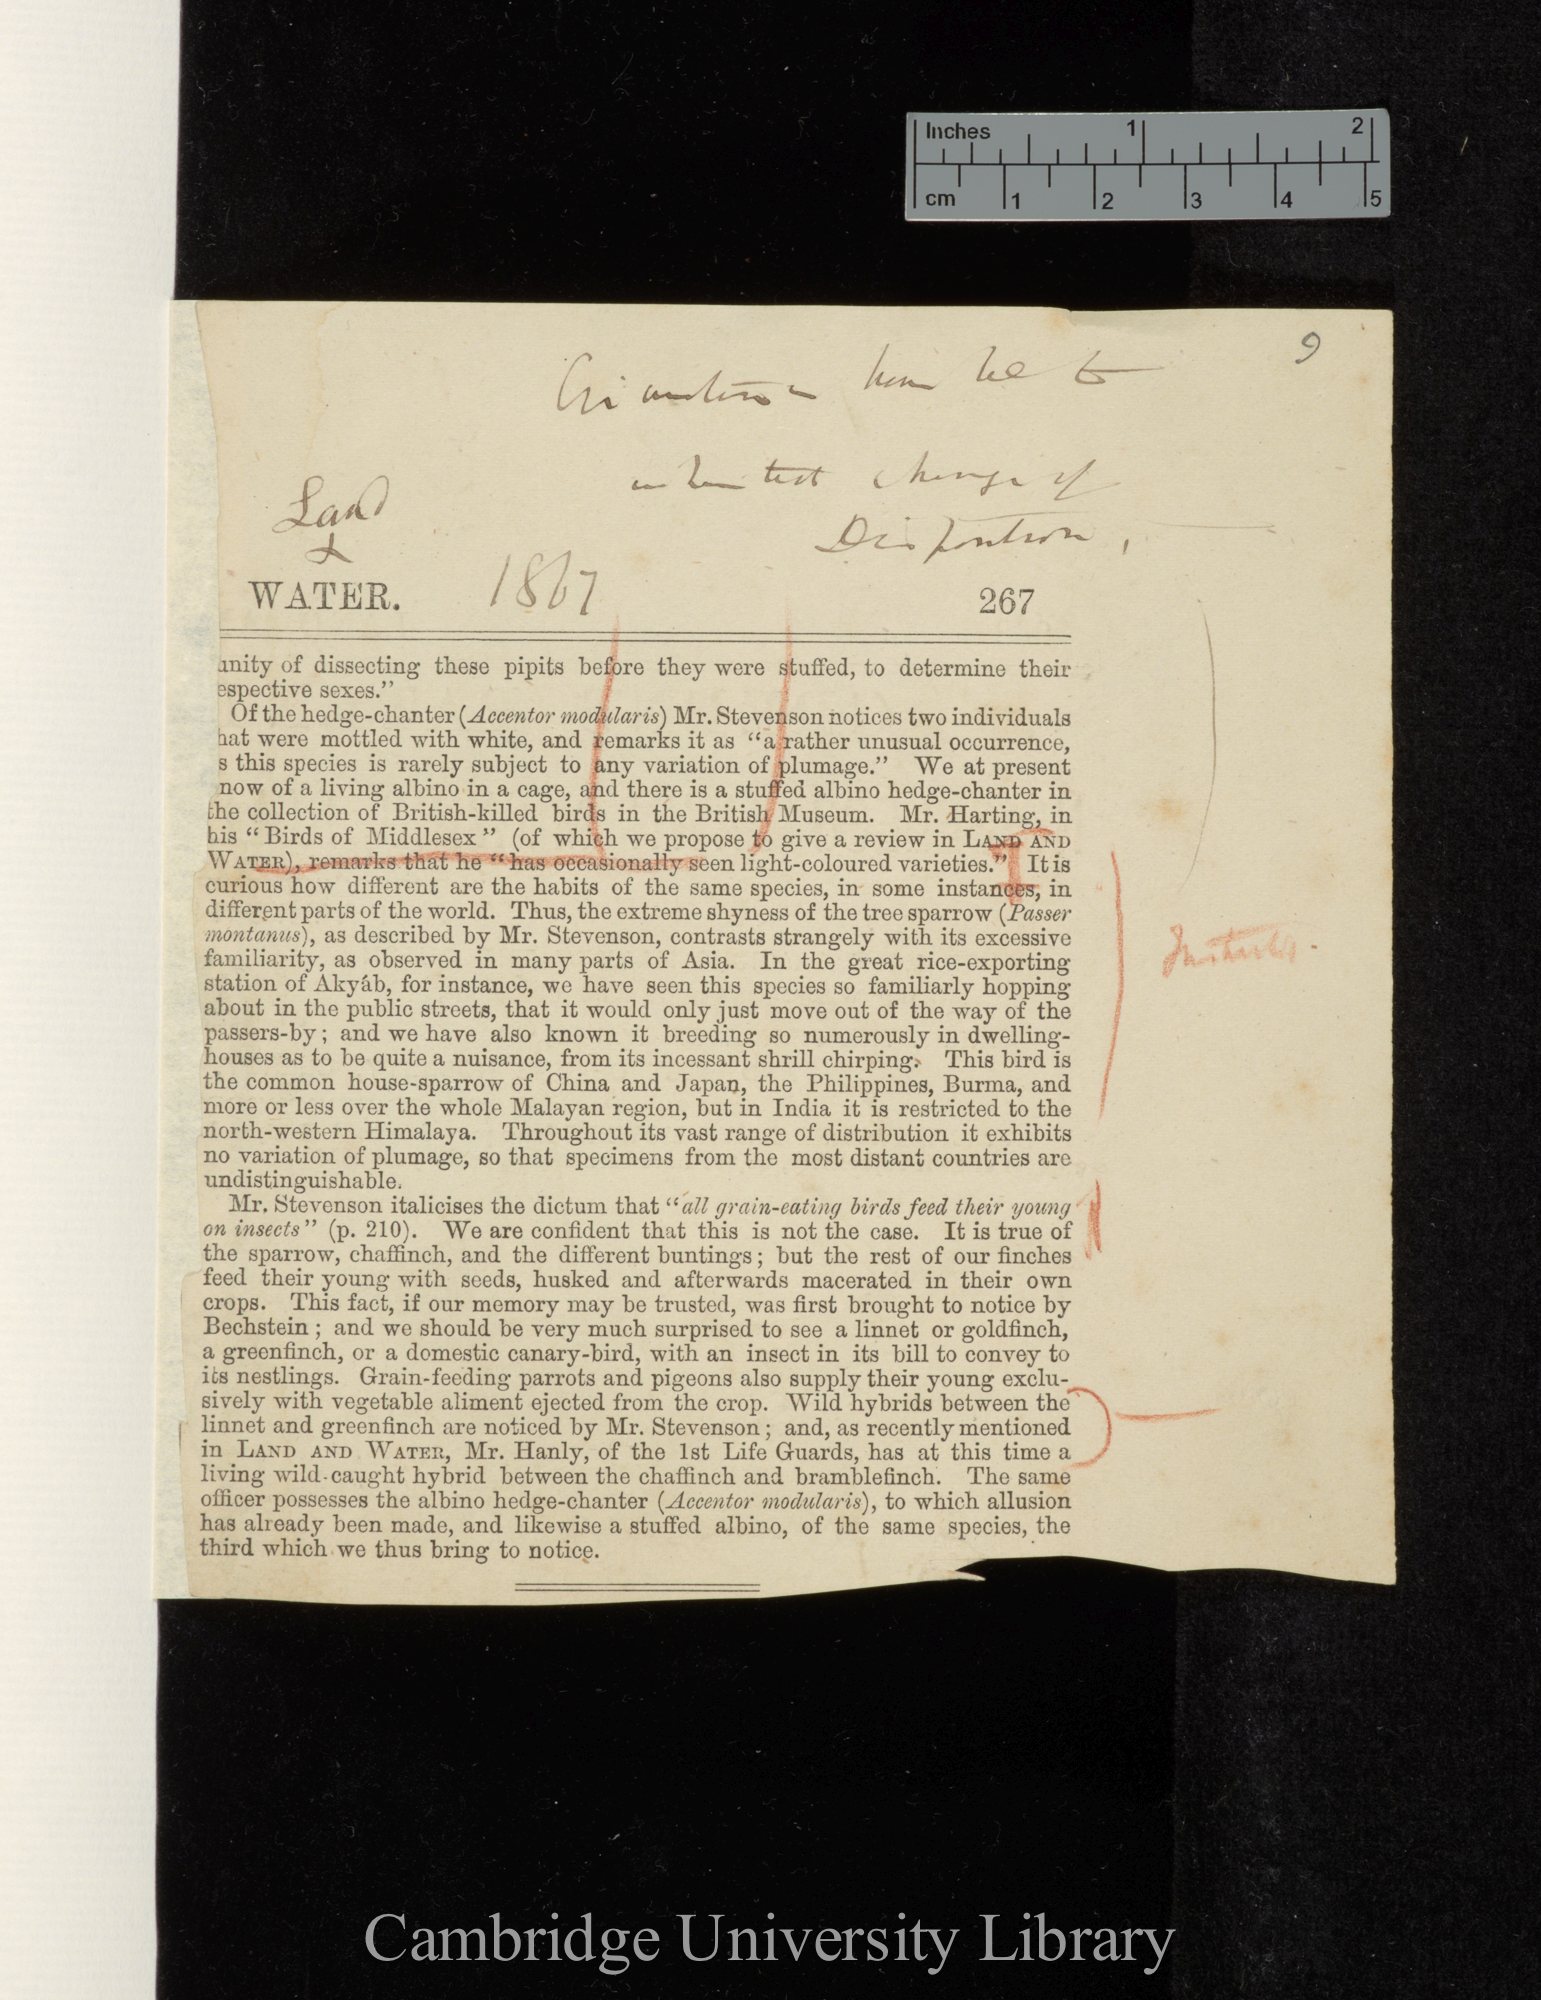 Inches 1 2
cm 1 2 3 4 5
9
change of
Land
&
WATER. 1867 267
unity of dissecting these pipits before they were stuffed, to determine their
espective sexes.”
Of the hedge-chanter (Accentor modularis) Mr. Stevenson notices two individuals
hat were mottled with white, and remarks it as “a rather unusual occurrence,
s this species is rarely subject to any variation of plumage.” We at present
now of a living albino in a cage, and there is a stuffed albino hedge-chanter in
the collection of British-killed birds in the British Museum. Mr. Harting, in
his “Birds of Middlesex” (of which we propose to give a review in LAND AND
WATER), remarks that he “has occasionally seen light-coloured varieties.” It is
curious how different are the habits of the same species, in some instances, in
different parts of the world. Thus, the extreme shyness of the tree sparrow (Passer
montanus), as described by Mr. Stevenson, contrasts strangely with its excessive
familiarity, as observed in many parts of Asia. In the great rice-exporting
station of Akyáb, for instance, we have seen this species so familiarly hopping
about in the public streets, that it would only just move out of the way of the
passers-by; and we have also known it breeding so numerously in dwelling-
houses as to be quite a nuisance, from its incessant shrill chirping. This bird is
the common house-sparrow of China and Japan, the Philippines, Burma, and
more or less over the whole Malayan region, but in India it is restricted to the
north-western Himalaya. Throughout its vast range of distribution it exhibits
no variation of plumage, so that specimens from the most distant countries are
undistinguishable.
Mr. Stevenson italicises the dictum that “all grain-eating birds feed their young
on insects” (p. 210). We are confident that this is not the case. It is true of
the sparrow, chaffinch, and the different buntings; but the rest of our finches
feed their young with seeds, husked and afterwards macerated in their own
crops. This fact, if our memory may be trusted, was first brought to notice by
Bechstein; and we should be very much surprised to see a linnet or goldfinch,
a greenfinch, or a domestic canary-bird, with an insect in its bill to convey to
its nestlings. Grain-feeding parrots and pigeons also supply their young exclu-
sively with vegetable aliment ejected from the crop. Wild hybrids between the
linnet and greenfinch are noticed by Mr. Stevenson; and, as recently mentioned
in LAND AND WATER, Mr. Hanly, of the 1st Life Guards, has at this time a
living wild-caught hybrid between the chaffinch and bramblefinch. The same
officer possesses the albino hedge-chanter (Accentor modularis), to which allusion
has already been made, and likewise a stuffed albino, of the same species, the
third which we thus bring to notice.
Cambridge University Library